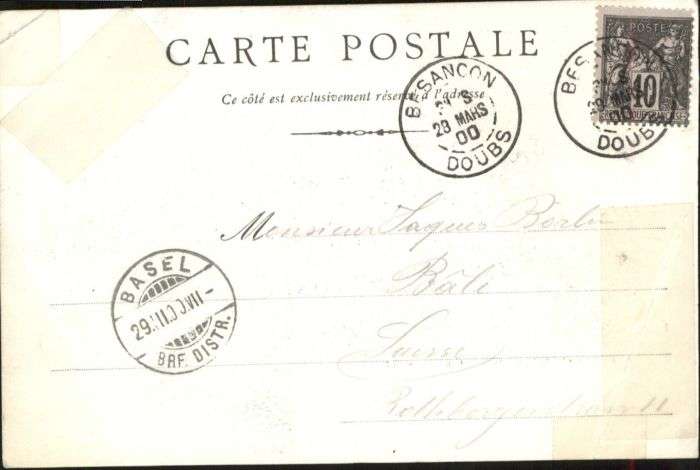 CARTE POSTALE
Ce côté est exclusivement réservé à l'adresse
BESANCON
28 MARS
00
DOUBS
BESANCON
28 MARS
00
DOUBS
POSTE
10
Monsieur Jaques
Bâli
Suisse
BASEL
29.III.00.VII-
BRF. DISTR.